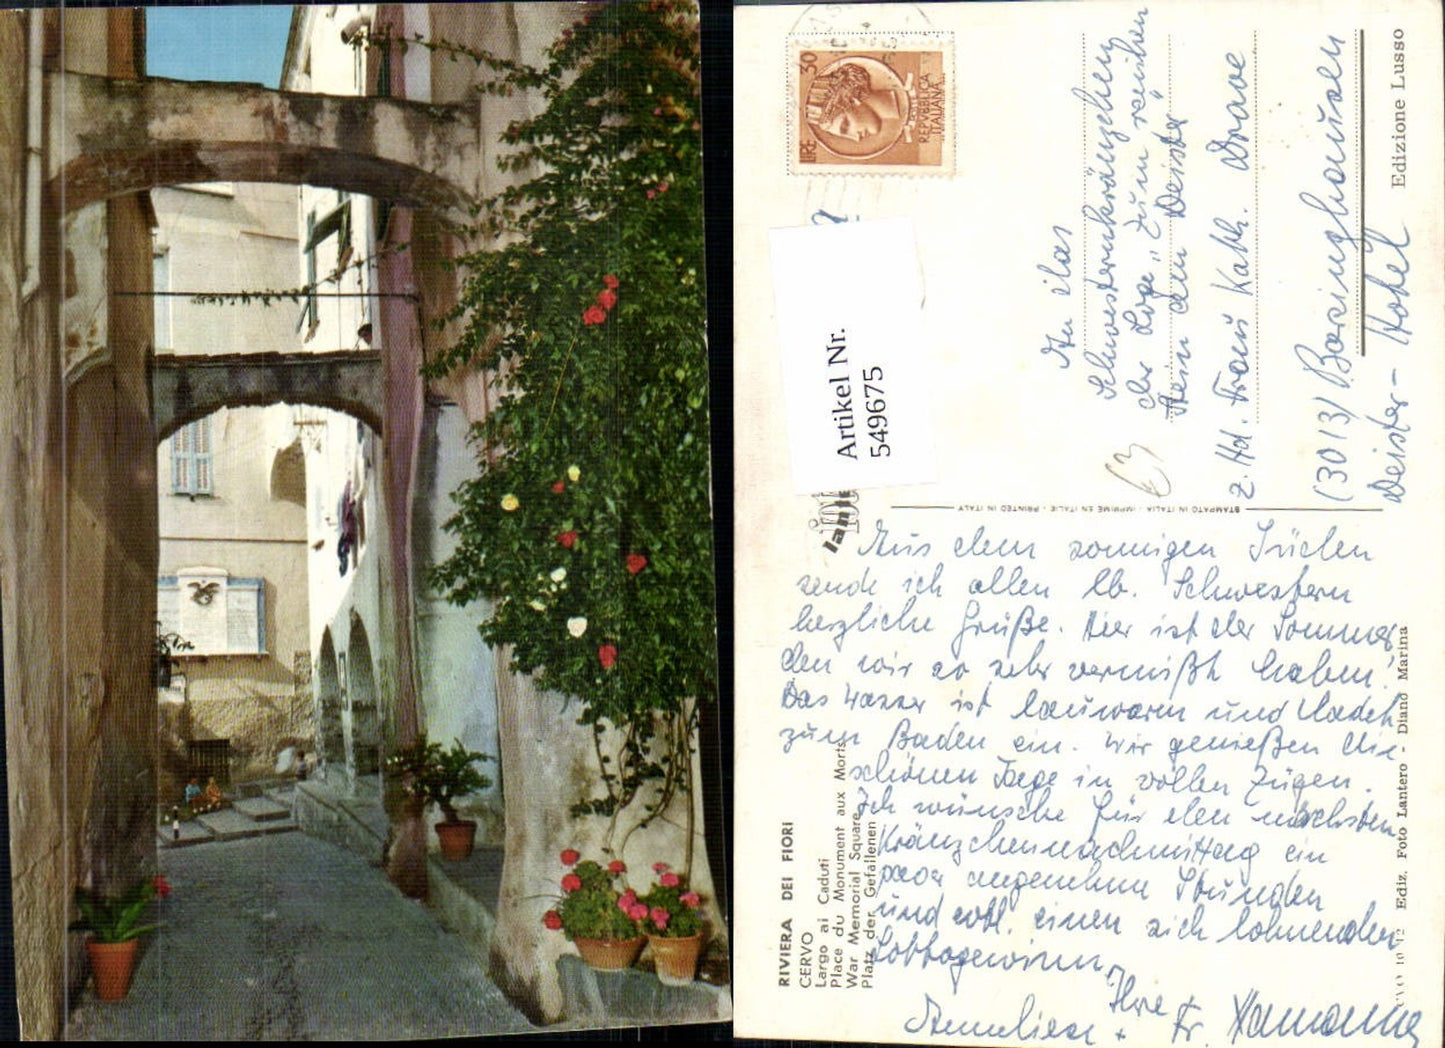 30
LIRE
REPVBBLICA
ITALIANA
Artikel Nr.
549675
An das
Schwesternkränzchen
der Loge „Zum reichen
Stein am Deister"
z. Hd. Frau Kath. Drave
(3013) Barsinghausen
Deister-Hotel
Edizione Lusso
STAMPATO IN ITALIA - IMPRIME EN ITALIE - PRINTED IN ITALY
Aus dem sonnigen Süden
sende ich allen lb. Schwestern
herzliche Grüße. Hier ist der Sommer,
den wir so sehr vermißt haben!
Das Wasser ist lauwarm und ladet
zum Baden ein. Wir genießen die
schönen Tage in vollen Zügen.
Ich wünsche für den nächsten
Kränzchennachmittag ein
paar angenehme Stunden
und evtl. einen sich lohnenden
Lottogewinn.
Ihre
Anneliese + Fr.
RIVIERA DEI FIORI
CERVO
Largo ai Caduti
Place du Monument aux Morts
War Memorial Square
Platz der Gefallenen
Ediz. Foto Lantero - Diano Marina